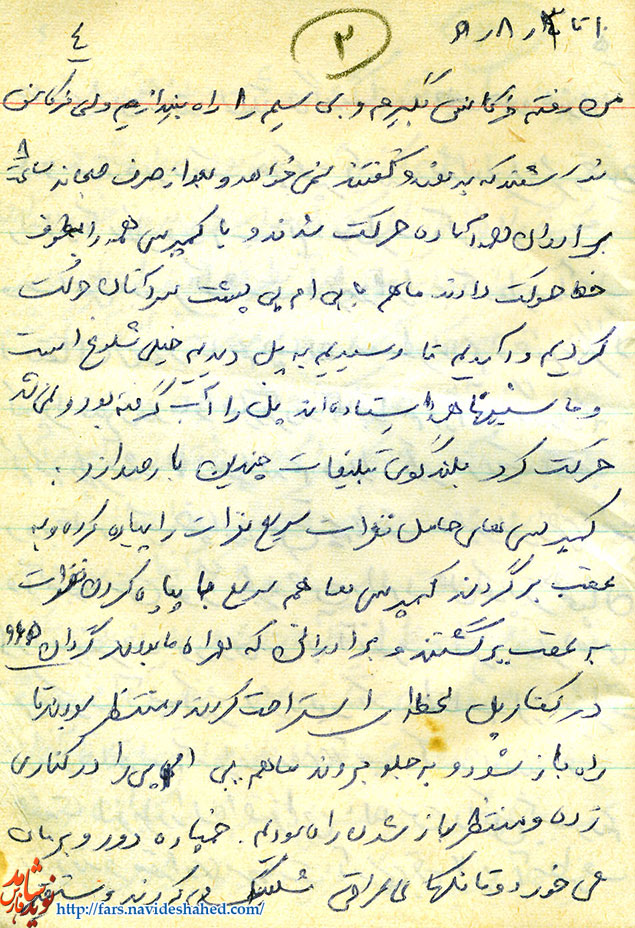 ۴
۳
من رفتم فرکانس بگیرم و بی سیم را راه بیندازیم ولی فرکانس
نداشتند که بدهند و گفتند نمی خواهد و بعد از صرف صبحانه ساعت ۸
برادران همه آماده حرکت شدند و با کمپرسی همه را بطرف
خط حرکت دادند ما هم با پی ام پی پشت سر آنان حرکت
کردیم و آمدیم تا رسیدیم به پل دیدیم خیلی شلوغ است
و ماشینها همه ایستاده اند پل را آب گرفته بود و نمی شد
حرکت کرد بلندگوی تبلیغات چندین بار صدا زد
کمپرسی های حامل نفرات سریع نفرات را پیاده کرده و به
عقب برگردند کمپرسی ها هم سریع با پیاده کردن نفرات
به عقب برگشتند و برادرانی که همراه ما بودند گردان
در کنار پل لحظه ای استراحت کردند و منتظر بودند تا
راه باز شود و به جلو بروند ما هم پی ام پی را در کناری
زدن و منتظر باز شدن راه بودیم. خمپاره دور و برمان
می خورد و تانکهای عراقی شلیک می کردند و
نوید شاهد فارس
http://fars.navideshahed.com/